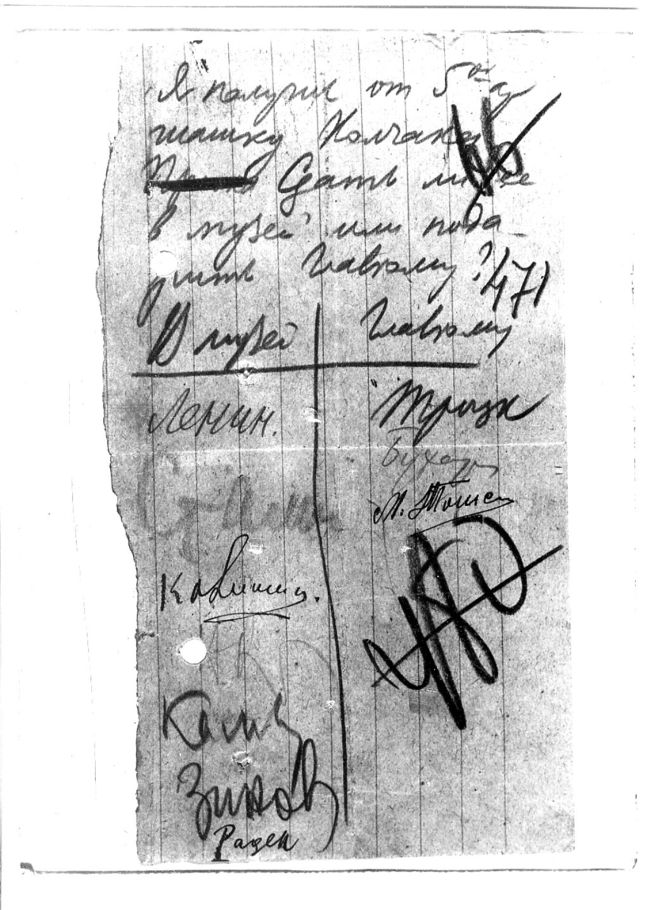 Я получил от 5ой а
шашку Колчака
Сдать ли ее
в музей или пода
рить Главкому?
471
В музей Главкому
Ленин. Троцк
Бухар
Сталин М. Томск
Калинин.
Каме
Зинов
Радек